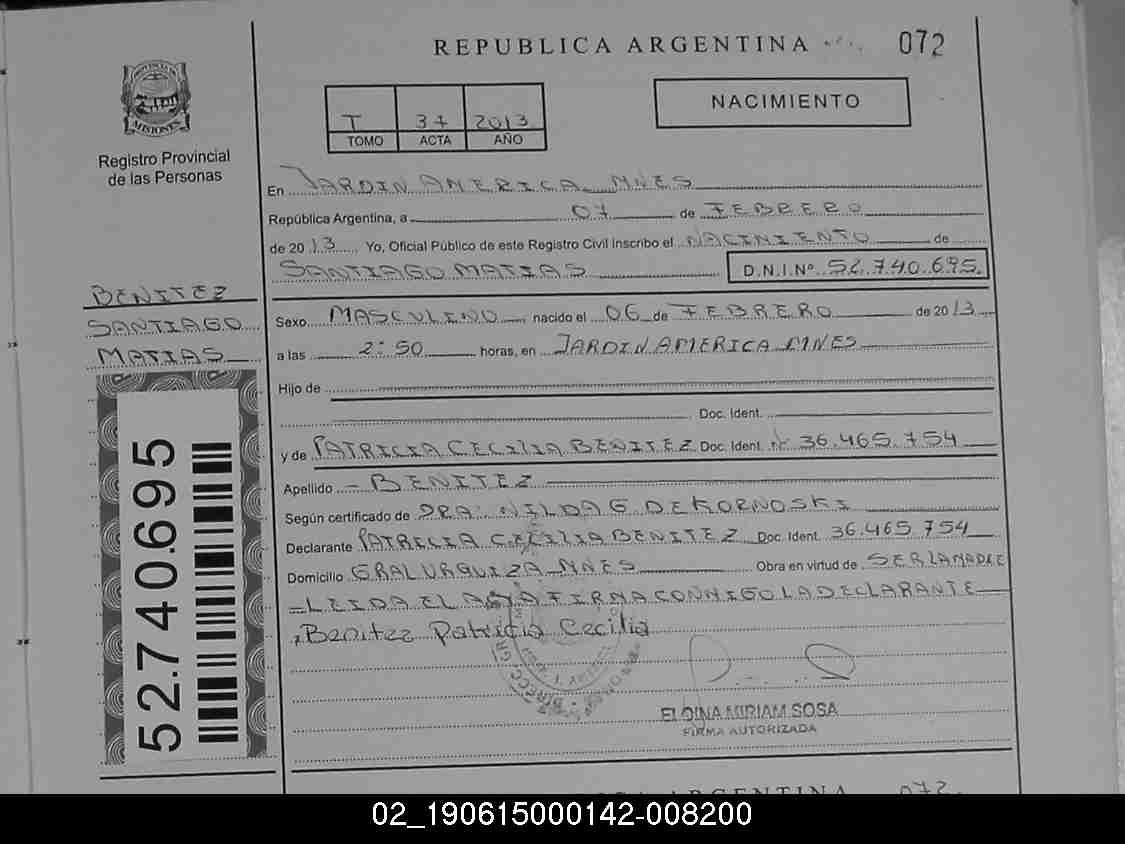 REPUBLICA ARGENTINA
072
PROVINCIA DE
MISIONES
Registro Provincial
de las Personas
T 34 2013
TOMO ACTA AÑO
NACIMIENTO
En JARDIN AMERICA MNES
República Argentina, a 07 de FEBRERO
de 2013 Yo, Oficial Público de este Registro Civil inscribo el NACIMIENTO de
SANTIAGO MATIAS D.N.I.Nº 52.740.695.
BENITEZ
SANTIAGO
MATIAS
Sexo MASCULINO nacido el 06 de FEBRERO de 2013
a las 2:50 horas, en JARDIN AMERICA MNES
Hijo de
Doc. Ident.
y de PATRICIA CECILIA BENITEZ Doc. Ident. Nº 36.465.754
Apellido - BENITEZ
Según certificado de DRA: NILDA G DEKORNOSKI
Declarante PATRICIA CECILIA BENITEZ Doc. Ident. 36.465.754
Domicilio GRAL URQUIZA MNES Obra en virtud de SER LA MADRE
- LEIDA EL ACTA FIRMA CONMIGO LA DECLARANTE
Benitez Patricia Cecilia
52.740.695
ELOINA MIRIAM SOSA
FIRMA AUTORIZADA
ARGENTINA 072
02_190615000142-008200